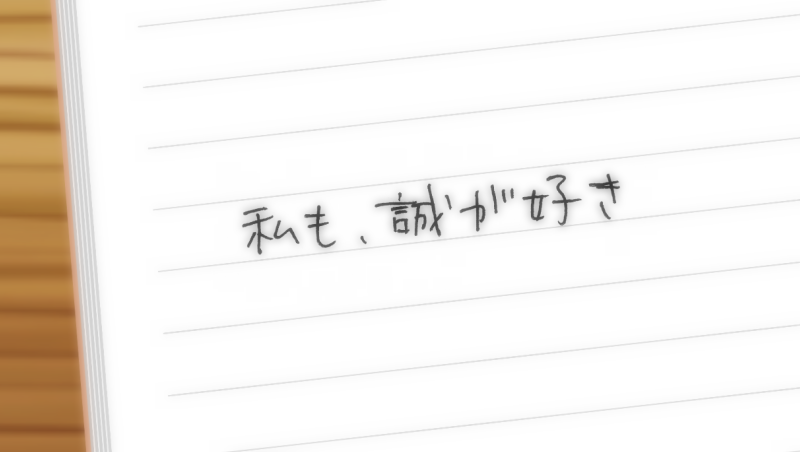 私も、誠が好き